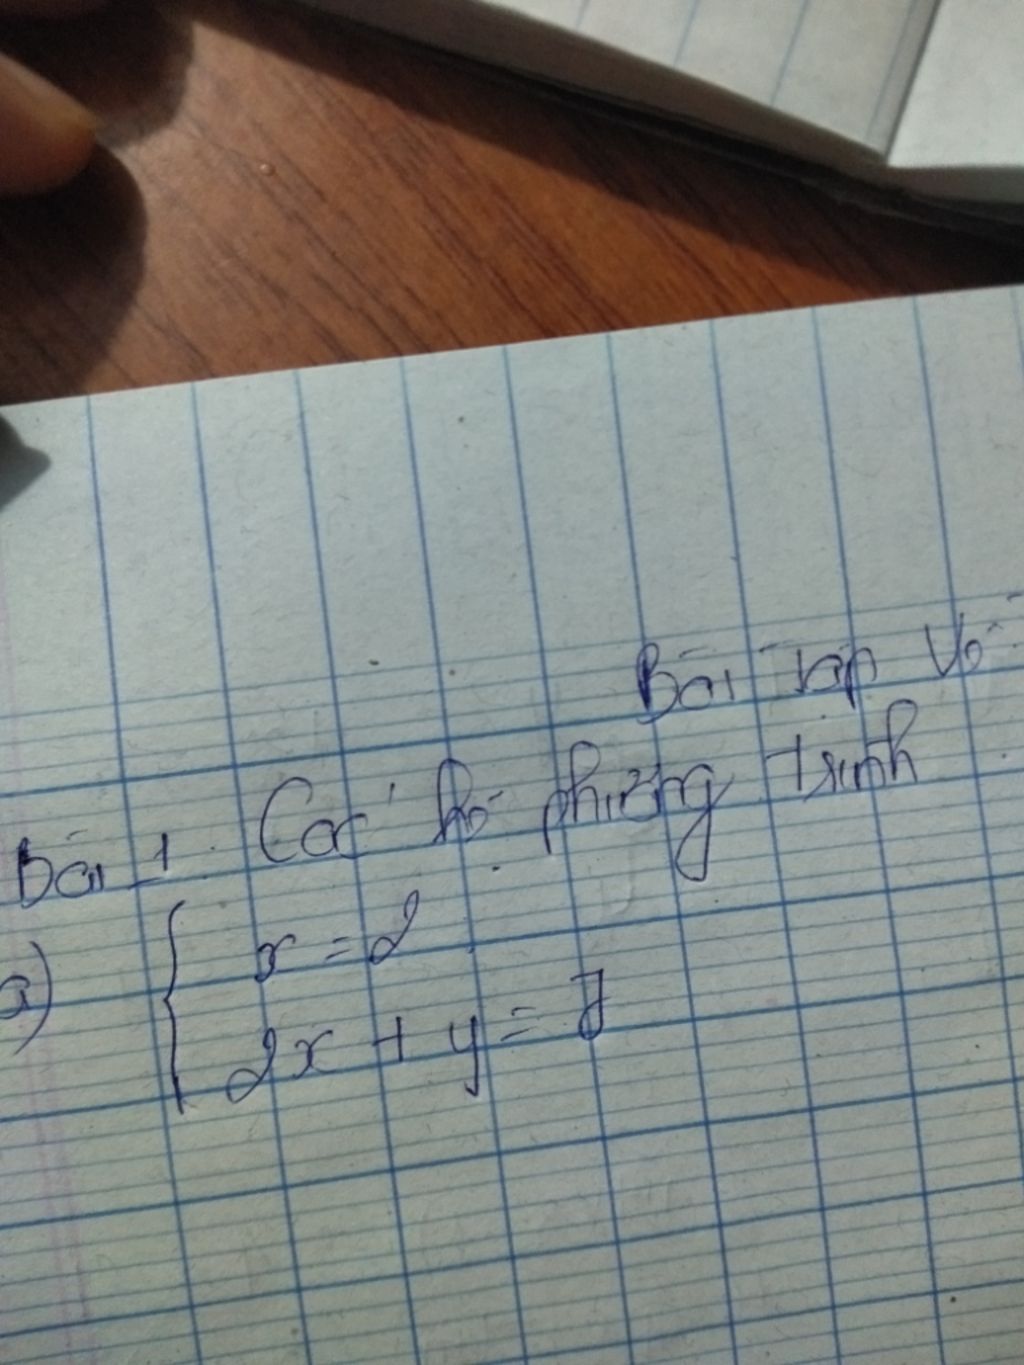 Bài tập Về
Bài 1. Các hệ phương trình
a) { x = 2
2x + y = 7